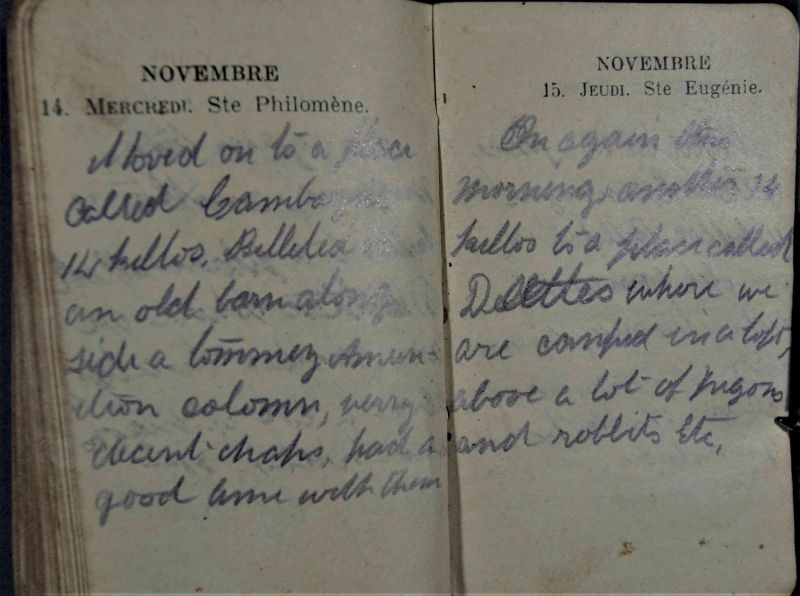 NOVEMBRE
14. MERCREDI. Ste Philomène.
Moved on to a place
called
14 killos. Billeted in
an old barn along
side a tommy Amun-
ition colomn, very
decent chaps, had a
good time with them
NOVEMBRE
15. JEUDI. Ste Eugénie.
On again this
morning, another 14
killos to a place called
Delettes where we
are camped in a loft,
above a lot of pigons
and robbits etc,